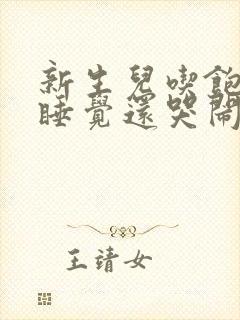 新生兒喫飽
睡覺還哭鬧
王靖女